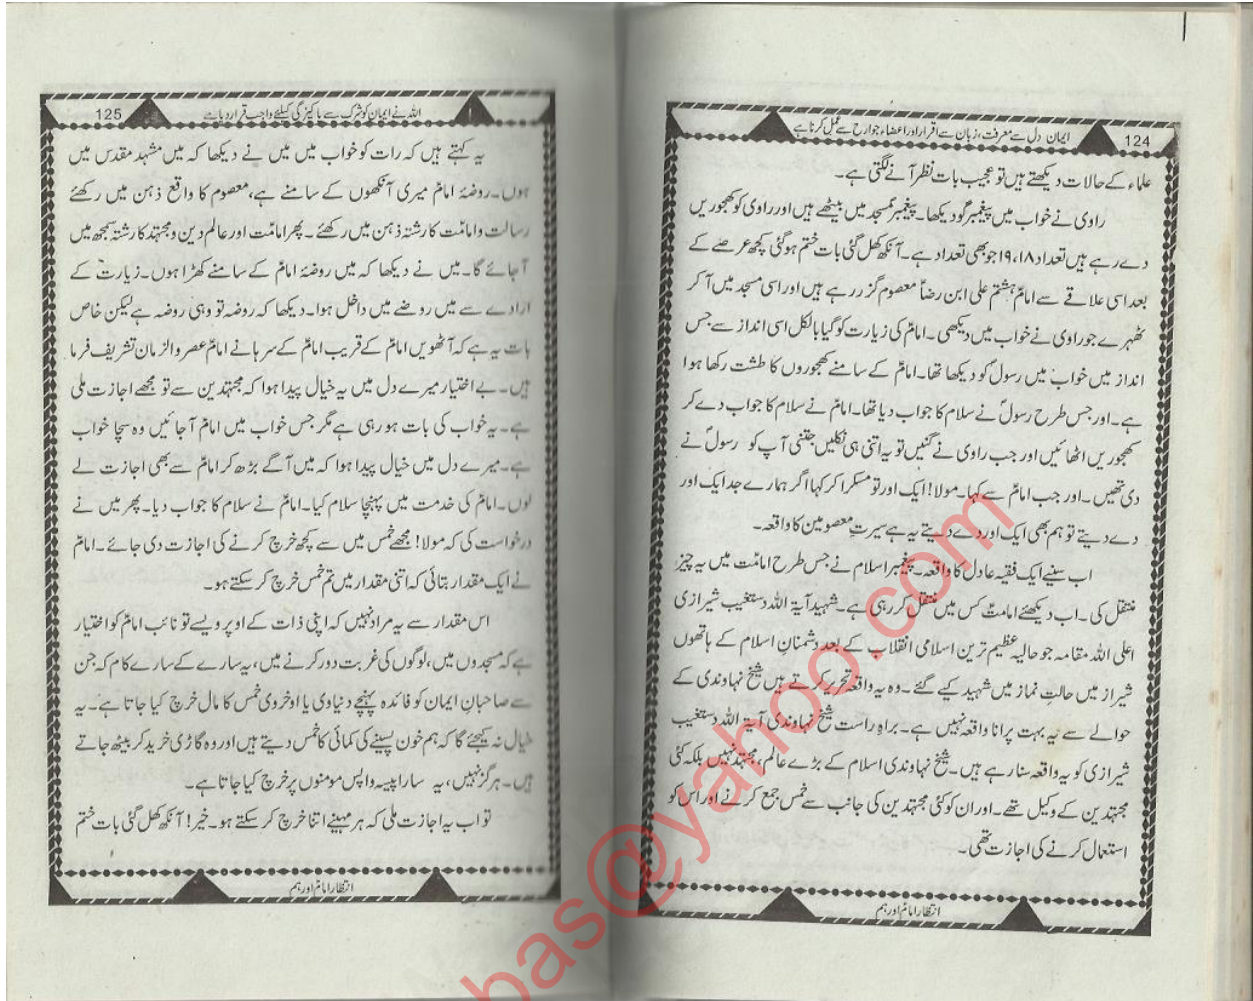 ایمان دل سے معرفت، زبان سے اقرار اور اعضاء جوارح سے عمل کرنا ہے
124
علماء کے حالات دیکھتے ہیں تو عجیب بات نظر آنے لگتی ہے۔
راوی نے خواب میں پیغمبرؐ کو دیکھا۔ پیغمبرؐ مسجد میں بیٹھے ہیں اور راوی کو کھجوریں
دے رہے ہیں تعداد ۱۹،۱۸ جو بھی تعداد ہے۔ آنکھ کھل گئی بات ختم ہو گئی کچھ عرصے کے
بعد اسی علاقے سے امامؑ ہشتم علی ابن رضاؑ معصوم گزر رہے ہیں اور اسی مسجد میں آ کر
ٹھہرے جو راوی نے خواب میں دیکھی۔ امامؑ کی زیارت کو گیا بالکل اسی انداز سے جس
انداز میں خواب میں رسولؐ کو دیکھا تھا۔ امامؑ کے سامنے کھجوروں کا طشت رکھا ہوا
ہے۔ اور جس طرح رسولؐ نے سلام کا جواب دیا تھا۔ امامؑ نے سلام کا جواب دے کر
کھجوریں اٹھائیں اور جب راوی نے گنیں تو یہ اتنی ہی نکلیں جتنی آپ کو رسولؐ نے
دی تھیں۔ اور جب امامؑ سے کہا۔ مولا! ایک اور تو مسکرا کر کہا اگر ہمارے جد ایک اور
دے دیتے تو ہم بھی ایک اور دے دیتے یہ ہے سیرتِ معصومین کا واقعہ۔
اب سنیے ایک فقیہ عادل کا واقعہ۔ پیغمبرؐ اسلام نے جس طرح امامت میں یہ چیز
منتقل کی۔ اب دیکھئے امامت کس میں منتقل کر رہی ہے۔ شہید آیۃ اللہ دستغیب شیرازی
اعلی اللہ مقامہ جو حالیہ عظیم ترین اسلامی انقلاب کے بعد دشمنانِ اسلام کے ہاتھوں
شیراز میں حالتِ نماز میں شہید کیے گئے۔ وہ یہ واقعہ تحریر کرتے ہیں شیخ نہاوندی کے
حوالے سے یہ بہت پرانا واقعہ نہیں ہے۔ براہِ راست شیخ نہاوندی آیۃ اللہ دستغیب
شیرازی کو یہ واقعہ سنا رہے ہیں۔ شیخ نہاوندی اسلام کے بڑے عالم، مجتہد نہیں بلکہ کئی
مجتہدین کے وکیل تھے۔ اور ان کو کئی مجتہدین کی جانب سے خمس جمع کرنے اور اس کو
استعمال کرنے کی اجازت تھی۔
انتظار امامؑ اور ہم
125
اللہ نے ایمان کو شرک سے پاکیزگی کیلئے واجب قرار دیا ہے
یہ کہتے ہیں کہ رات کو خواب میں میں نے دیکھا کہ میں مشہد مقدس میں
ہوں۔ روضۂ امامؑ میری آنکھوں کے سامنے ہے، معصوم کا واقع ذہن میں رکھئے
رسالت و امامت کا رشتہ ذہن میں رکھئے۔ پھر امامت اور عالم دین و مجتہد کا رشتہ سمجھ میں
آ جائے گا۔ میں نے دیکھا کہ میں روضۂ امامؑ کے سامنے کھڑا ہوں۔ زیارت کے
ارادے سے میں روضے میں داخل ہوا۔ دیکھا کہ روضہ تو وہی روضہ ہے لیکن خاص
بات یہ ہے کہ آٹھویں امامؑ کے قریب امامؑ کے سرہانے امامؑ عصر و الزمان تشریف فرما
ہیں۔ بے اختیار میرے دل میں یہ خیال پیدا ہوا کہ مجتہدین سے تو مجھے اجازت ملی
ہے۔ یہ خواب کی بات ہو رہی ہے مگر جس خواب میں امامؑ آ جائیں وہ سچا خواب
ہے۔ میرے دل میں خیال پیدا ہوا کہ میں آگے بڑھ کر امامؑ سے بھی اجازت لے
لوں۔ امامؑ کی خدمت میں پہنچا سلام کیا۔ امامؑ نے سلام کا جواب دیا۔ پھر میں نے
درخواست کی کہ مولا! مجھے خمس میں سے کچھ خرچ کرنے کی اجازت دی جائے۔ امامؑ
نے ایک مقدار بتائی کہ اتنی مقدار میں تم خمس خرچ کر سکتے ہو۔
اس مقدار سے یہ مراد نہیں کہ اپنی ذات کے اوپر ویسے تو نائب امامؑ کو اختیار
ہے کہ مسجدوں میں، لوگوں کی غربت دور کرنے میں، یہ سارے کے سارے کام کہ جن
سے صاحبانِ ایمان کو فائدہ پہنچے دنیاوی یا اخروی خمس کا مال خرچ کیا جاتا ہے۔ یہ
خیال نہ کیجئے گا کہ ہم خون پسینے کی کمائی کا خمس دیتے ہیں اور وہ گاڑی خرید کر بیٹھ جاتے
ہیں۔ ہرگز نہیں، یہ سارا پیسہ واپس مومنوں پر خرچ کیا جاتا ہے۔
تو اب یہ اجازت ملی کہ ہر مہینے اتنا خرچ کر سکتے ہو۔ خیر! آنکھ کھل گئی بات ختم
انتظار امامؑ اور ہم
bas@yahoo.com